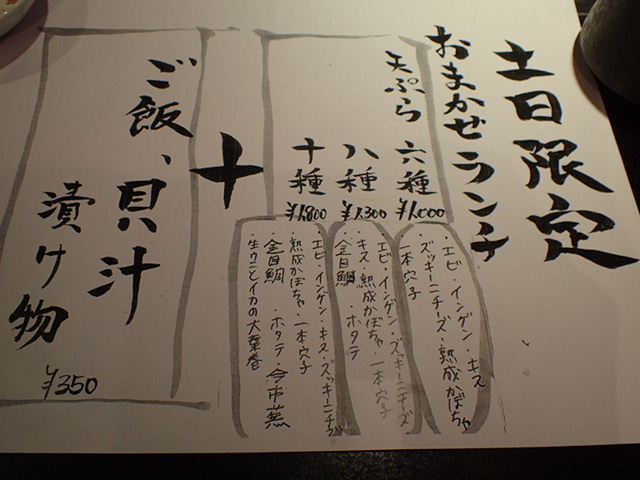 土日限定
おまかせランチ
天ぷら
六種
¥1,000
・エビ・インゲン・キス
ズッキーニチーズ・熟成かぼちゃ
一本穴子
八種
¥1,300
エビ・インゲン・ズッキーニチーズ
・キス・熟成かぼちゃ・一本穴子
金目鯛・ホタテ
十種
¥1,800
エビ・インゲン・キス・ズッキーニチーズ
熟成かぼちゃ・一本穴子
・金目鯛・ホタテ・今市蕪
・生ウニとイカの大葉巻
+
ご飯、貝汁
漬け物
¥350